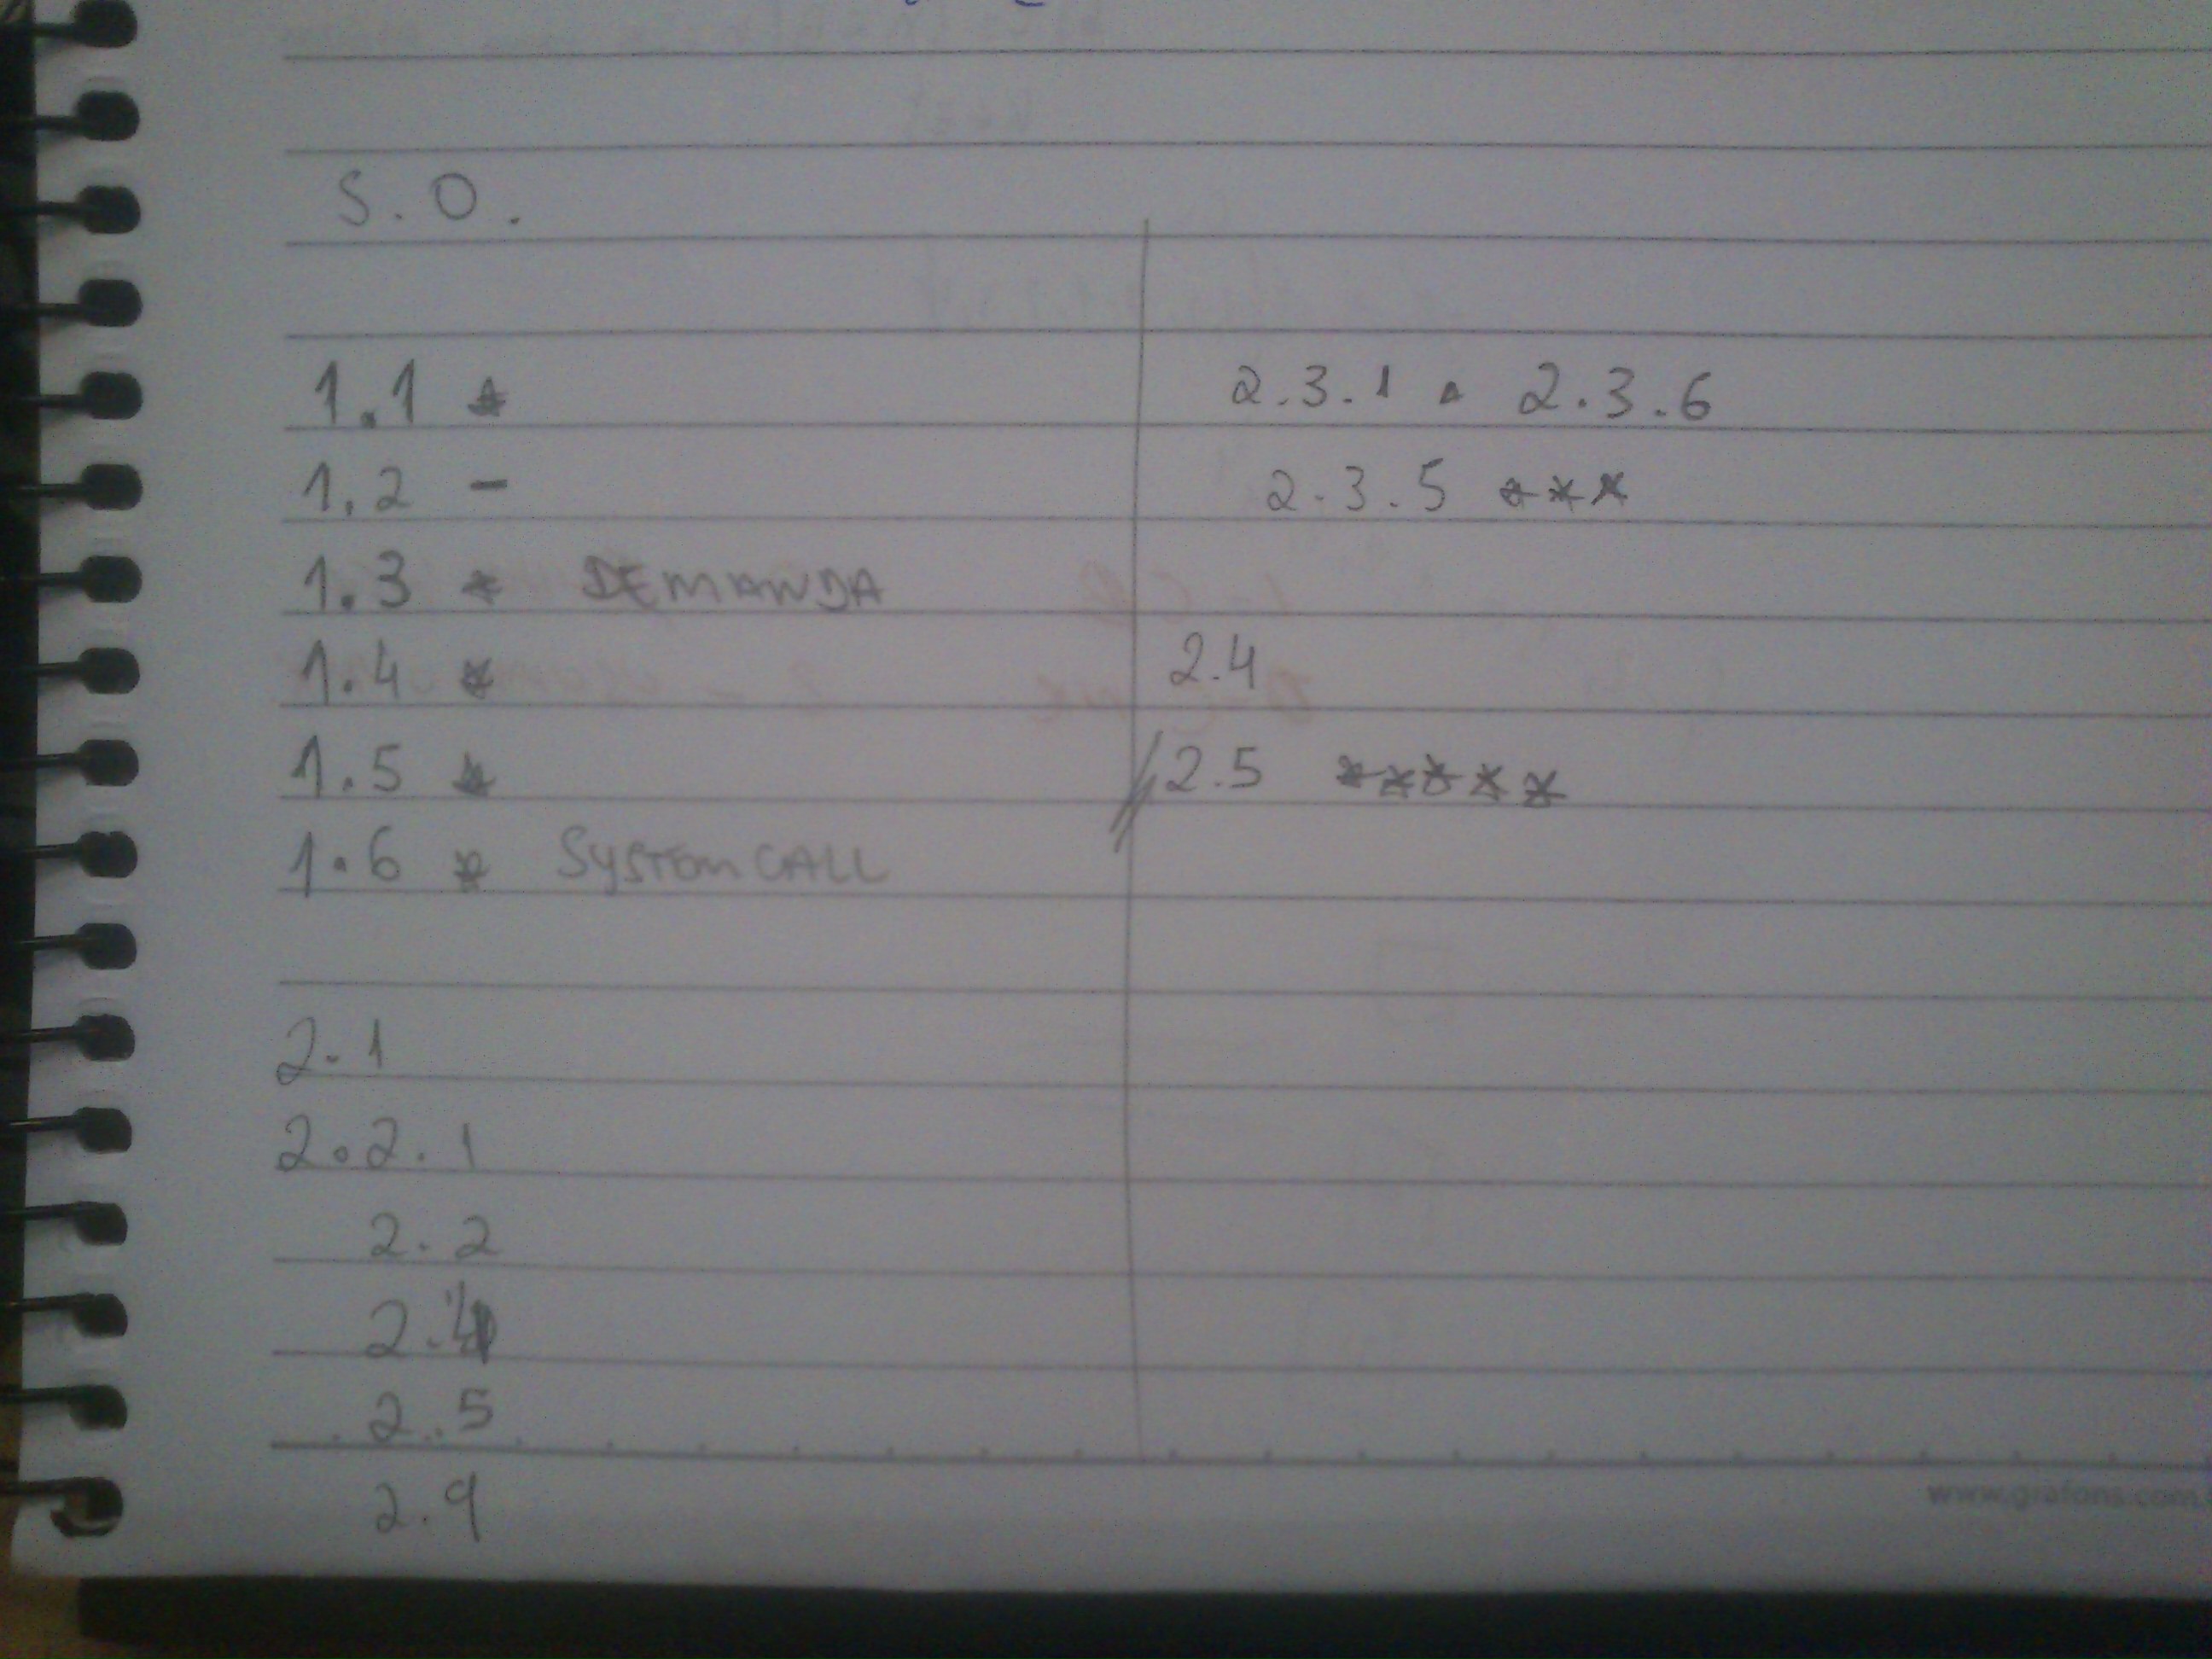 S.O.
1.1 *
1.2 -
1.3 * DEMANDA
1.4 *
1.5 *
1.6 * SYSTEM CALL
2.1
2.2.1
2.2
2.4
2.5
2.9
2.3.1 A 2.3.6
2.3.5 ***
2.4
2.5 *****
www.grafons.com